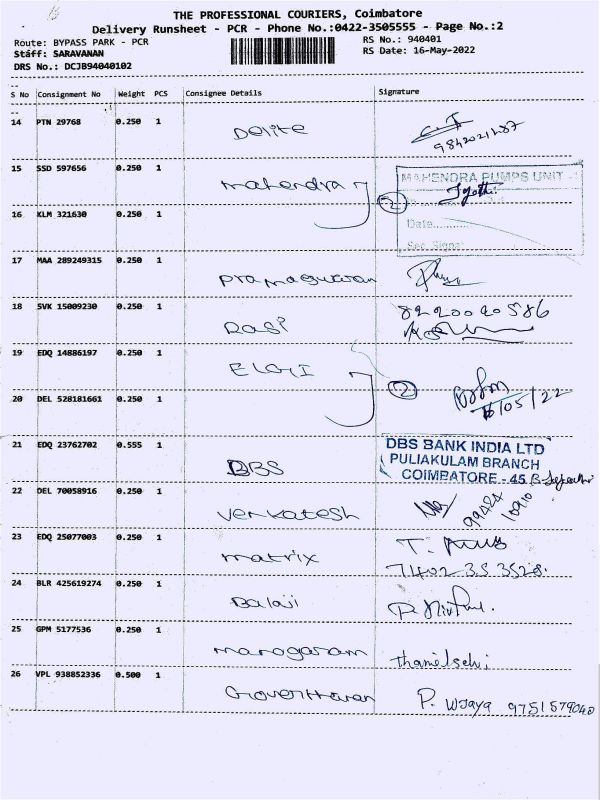 THE PROFESSIONAL COURIERS, Coimbatore
Delivery Runsheet - PCR - Phone No.:0422-3505555 - Page No.:2
Route: BYPASS PARK - PCR
RS No.: 940401
Staff: SARAVANAN
RS Date: 16-May-2022
DRS No.: DCJB94040102
S No Consignment No Weight PCS Consignee Details Signature
14 PTN 29768 0.250 1 Delite
9842021287
15 SSD 597656 0.250 1 mahendra 2
MAHENDRA PUMPS UNIT
Jyothi
16 KLM 321630 0.250 1
Date
Sec. Signa
17 MAA 289249315 0.250 1
18 SVK 15009230 0.250 1 Rasi 8220020586
19 EDQ 14886197 0.250 1 ELGI 2
20 DEL 528181661 0.250 1
16/05/22
21 EDQ 23762702 0.555 1 DBS
DBS BANK INDIA LTD
PULIAKULAM BRANCH
COIMBATORE - 45
22 DEL 70058916 0.250 1 Venkatesh
99424
10910
23 EDQ 25077003 0.250 1 matrix T.
7402 35 3528.
24 BLR 425619274 0.250 1 Balaji
25 GPM 5177536 0.250 1 manogaram thamilselvi
26 VPL 938852336 0.500 1 P. Wijaya 9751579040